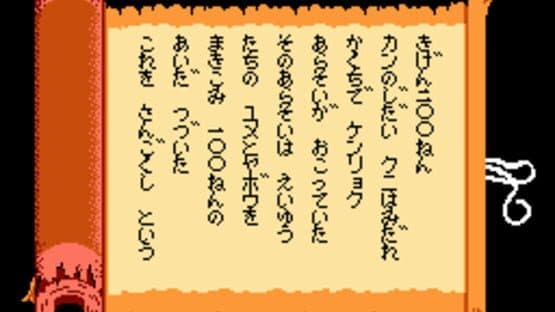 きげん100ねん
カンのじだい クニはみだれ
かくちで ケンリョク
あらそいが おこっていた
そのあらそいは えいゆう
たちの ユメとヤボウを
まきこみ 100ねんの
あいだ つづいた
これを さんごくし という